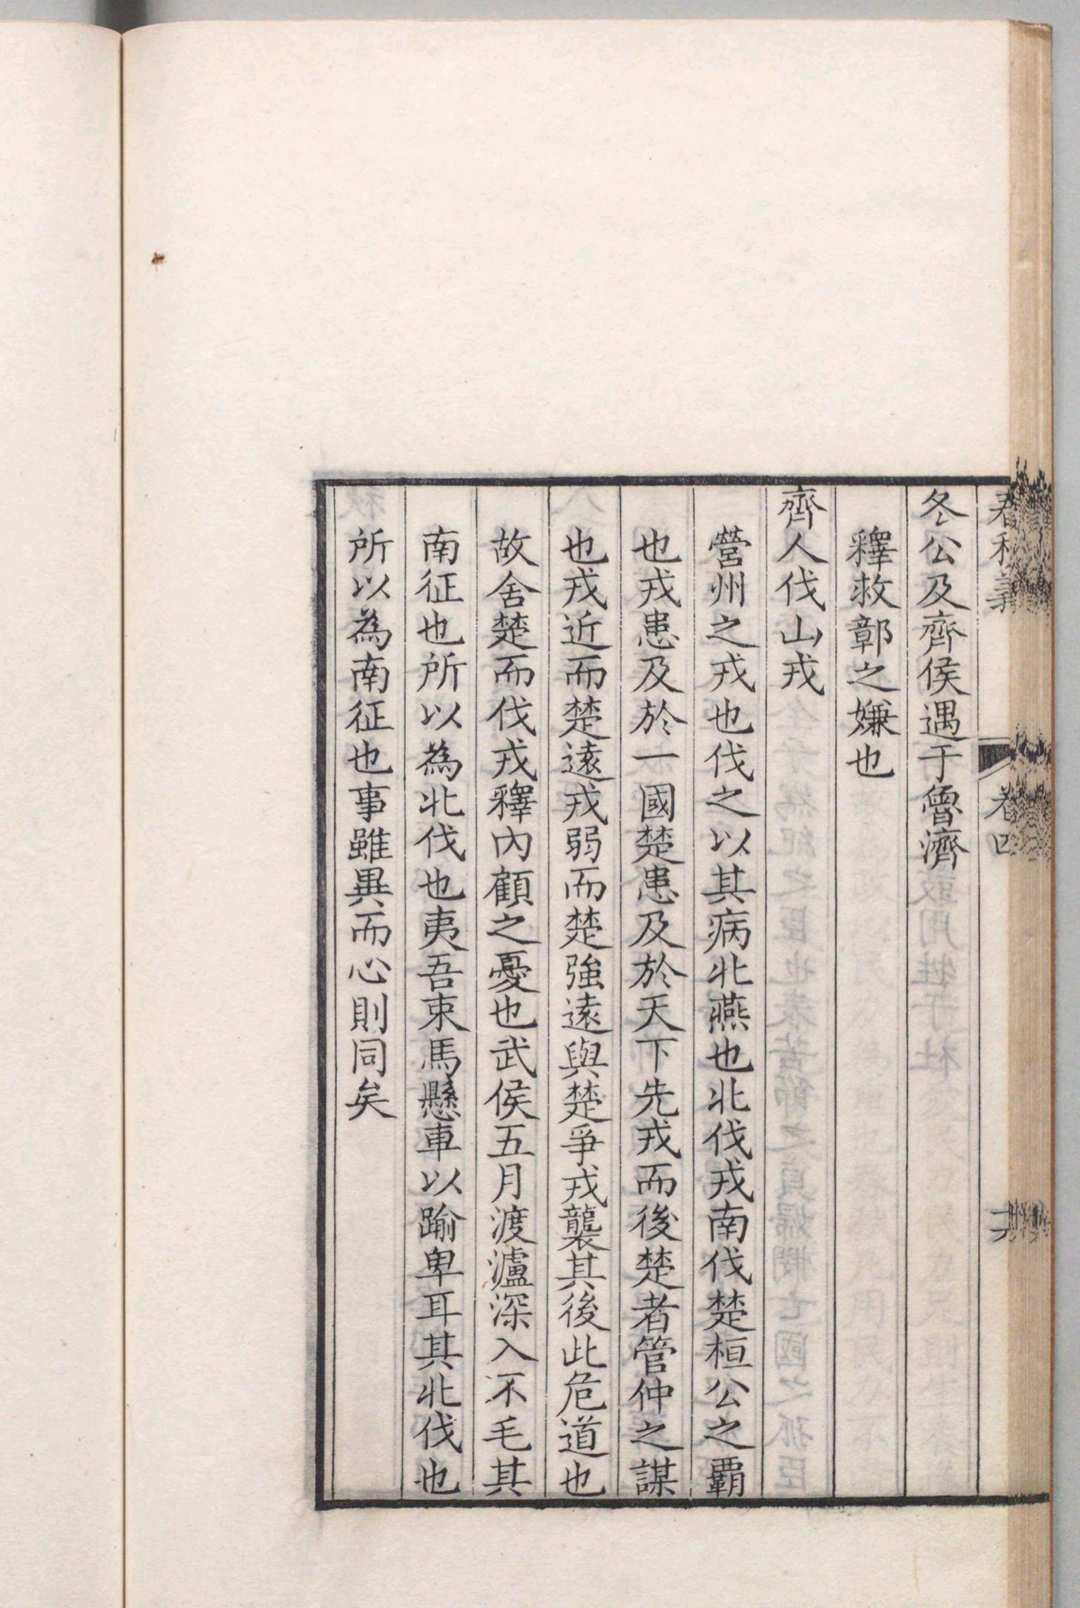 春秋義
卷四
冬公及齊侯遇于魯濟
釋救鄣之嫌也
齊人伐山戎
營州之戎也伐之以其病北燕也北伐戎南伐楚桓公之霸
也戎患及於一國楚患及於天下先戎而後楚者管仲之謀
也戎近而楚遠戎弱而楚強遠與楚爭戎襲其後此危道也
故舍楚而伐戎釋內顧之憂也武侯五月渡瀘深入不毛其
南征也所以為北伐也夷吾束馬懸車以踰卑耳其北伐也
所以為南征也事雖異而心則同矣